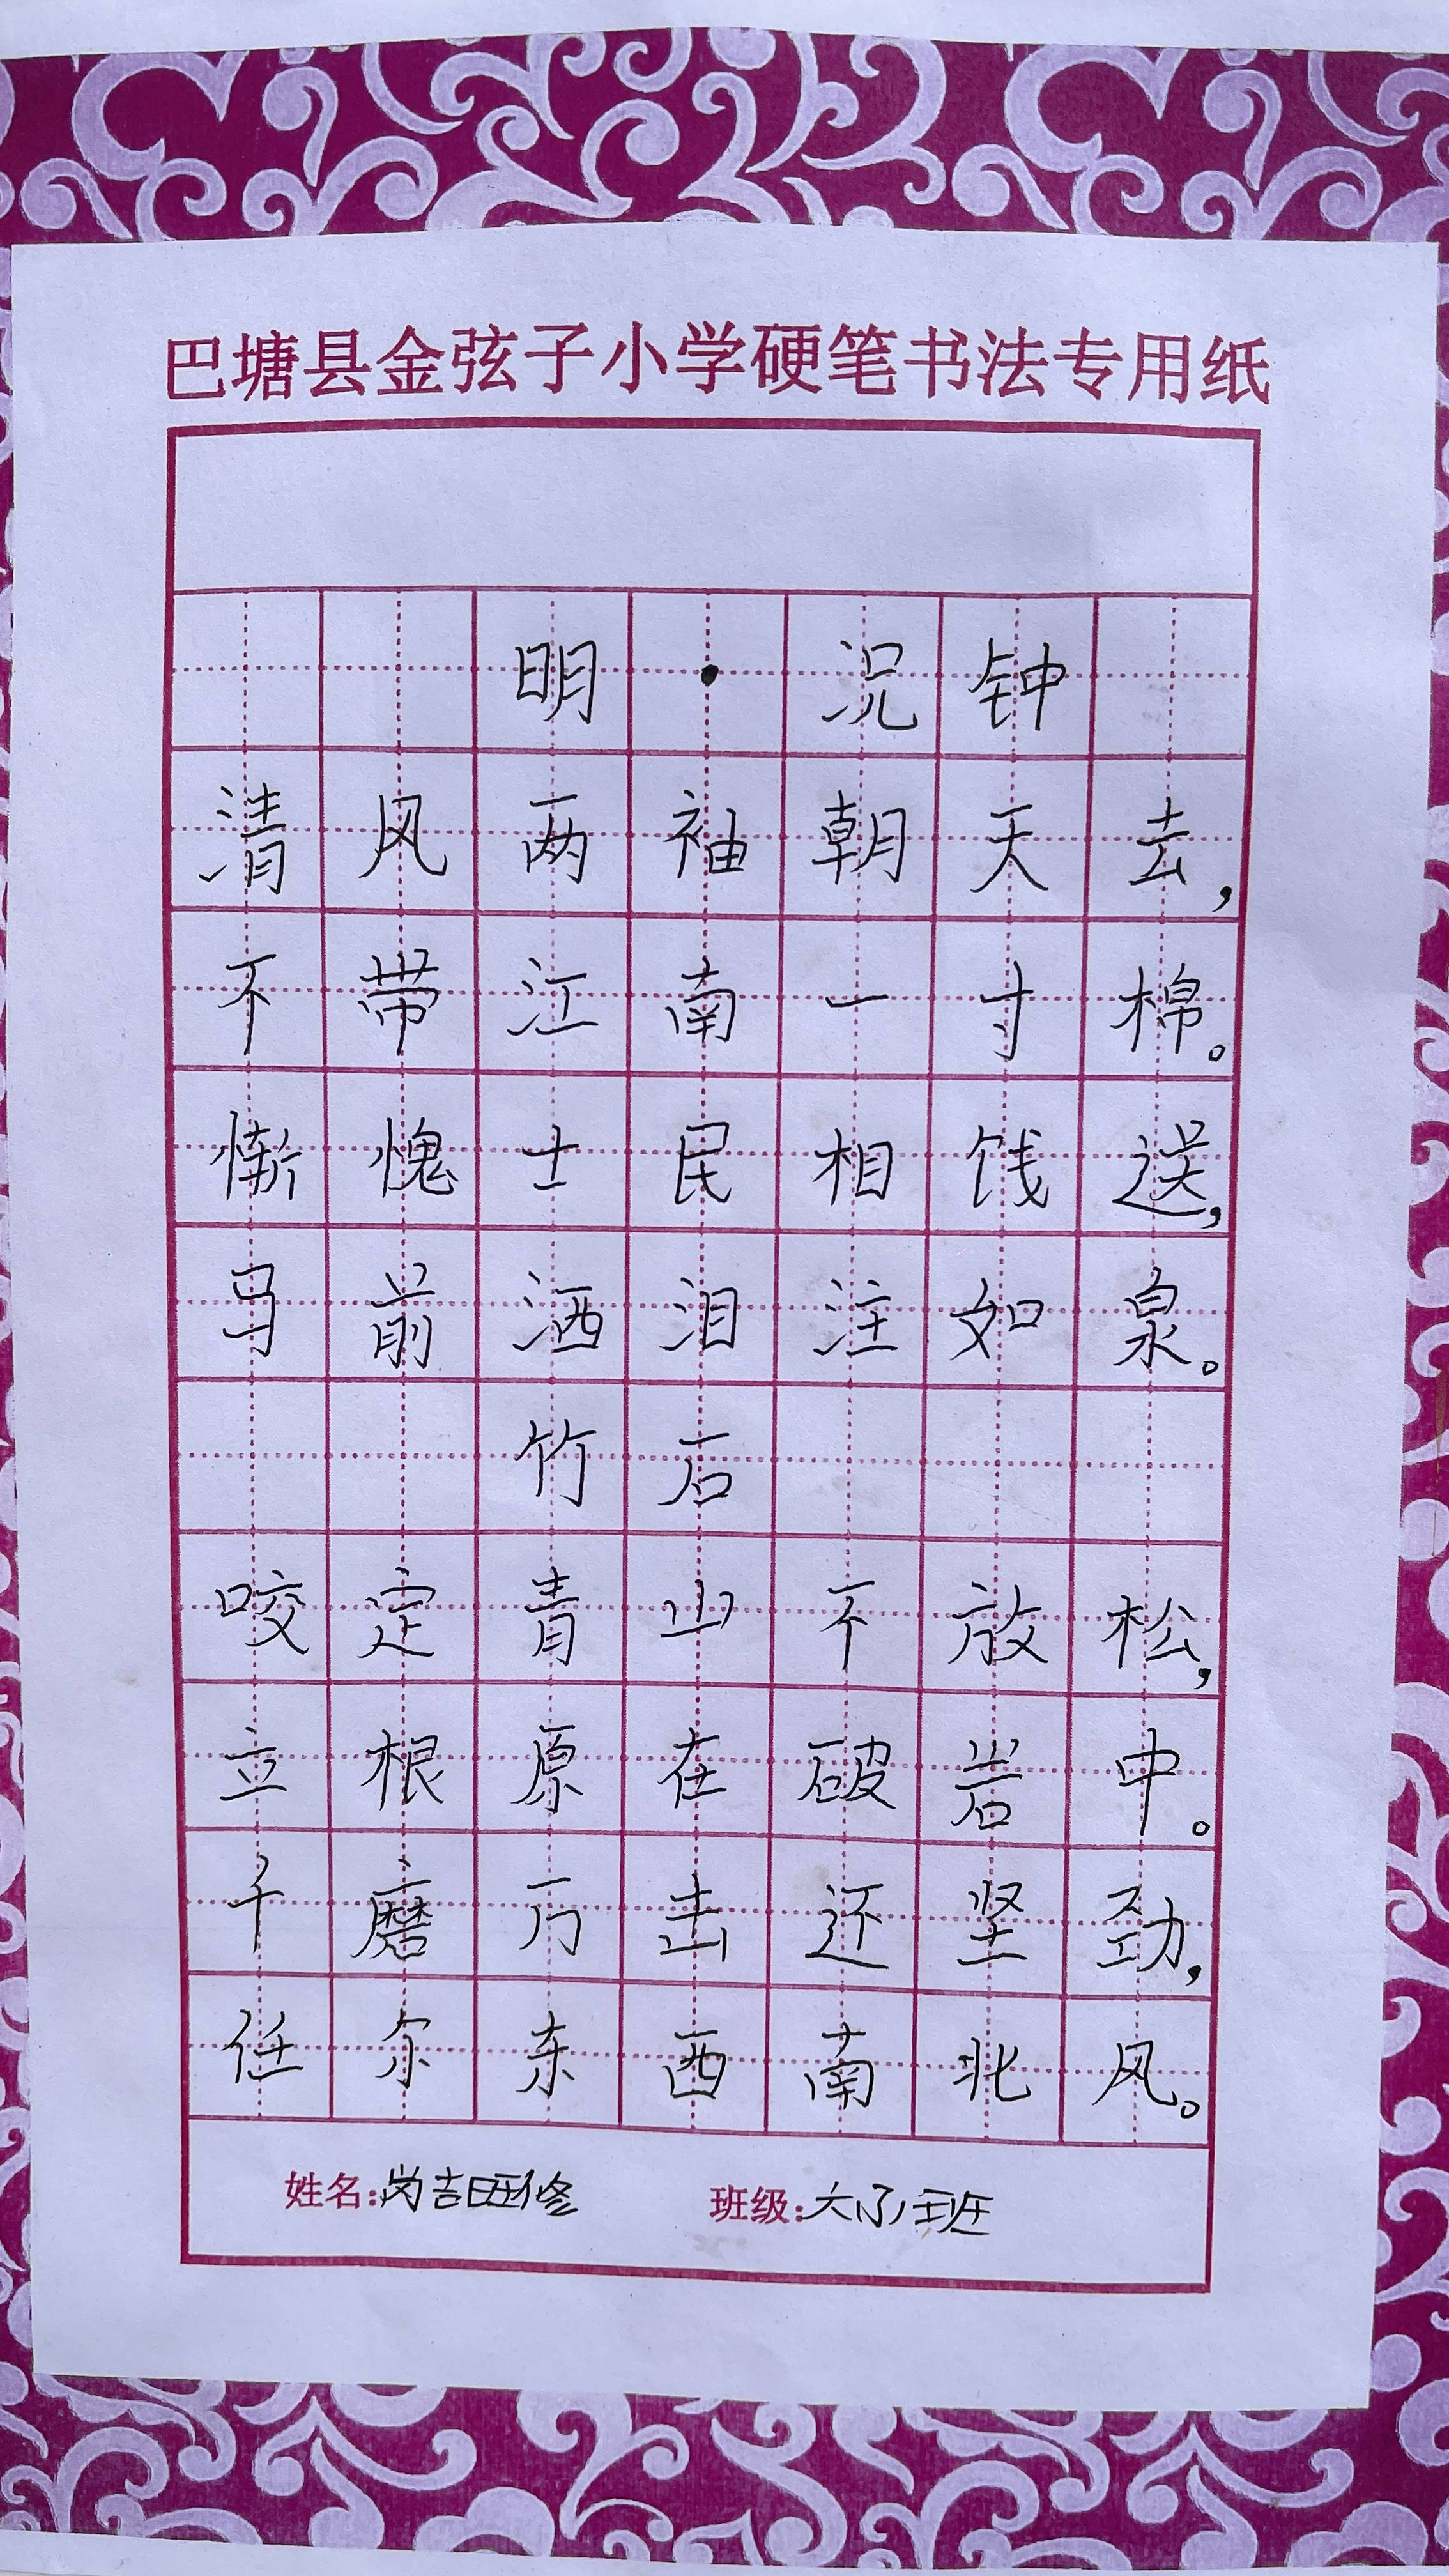 巴塘县金弦子小学硬笔书法专用纸
明·况钟
清风两袖朝天去，
不带江南一寸棉。
惭愧士民相饯送，
马前洒泪注如泉。
竹石
咬定青山不放松，
立根原在破岩中。
千磨万击还坚劲，
任尔东西南北风。
姓名： 班级：